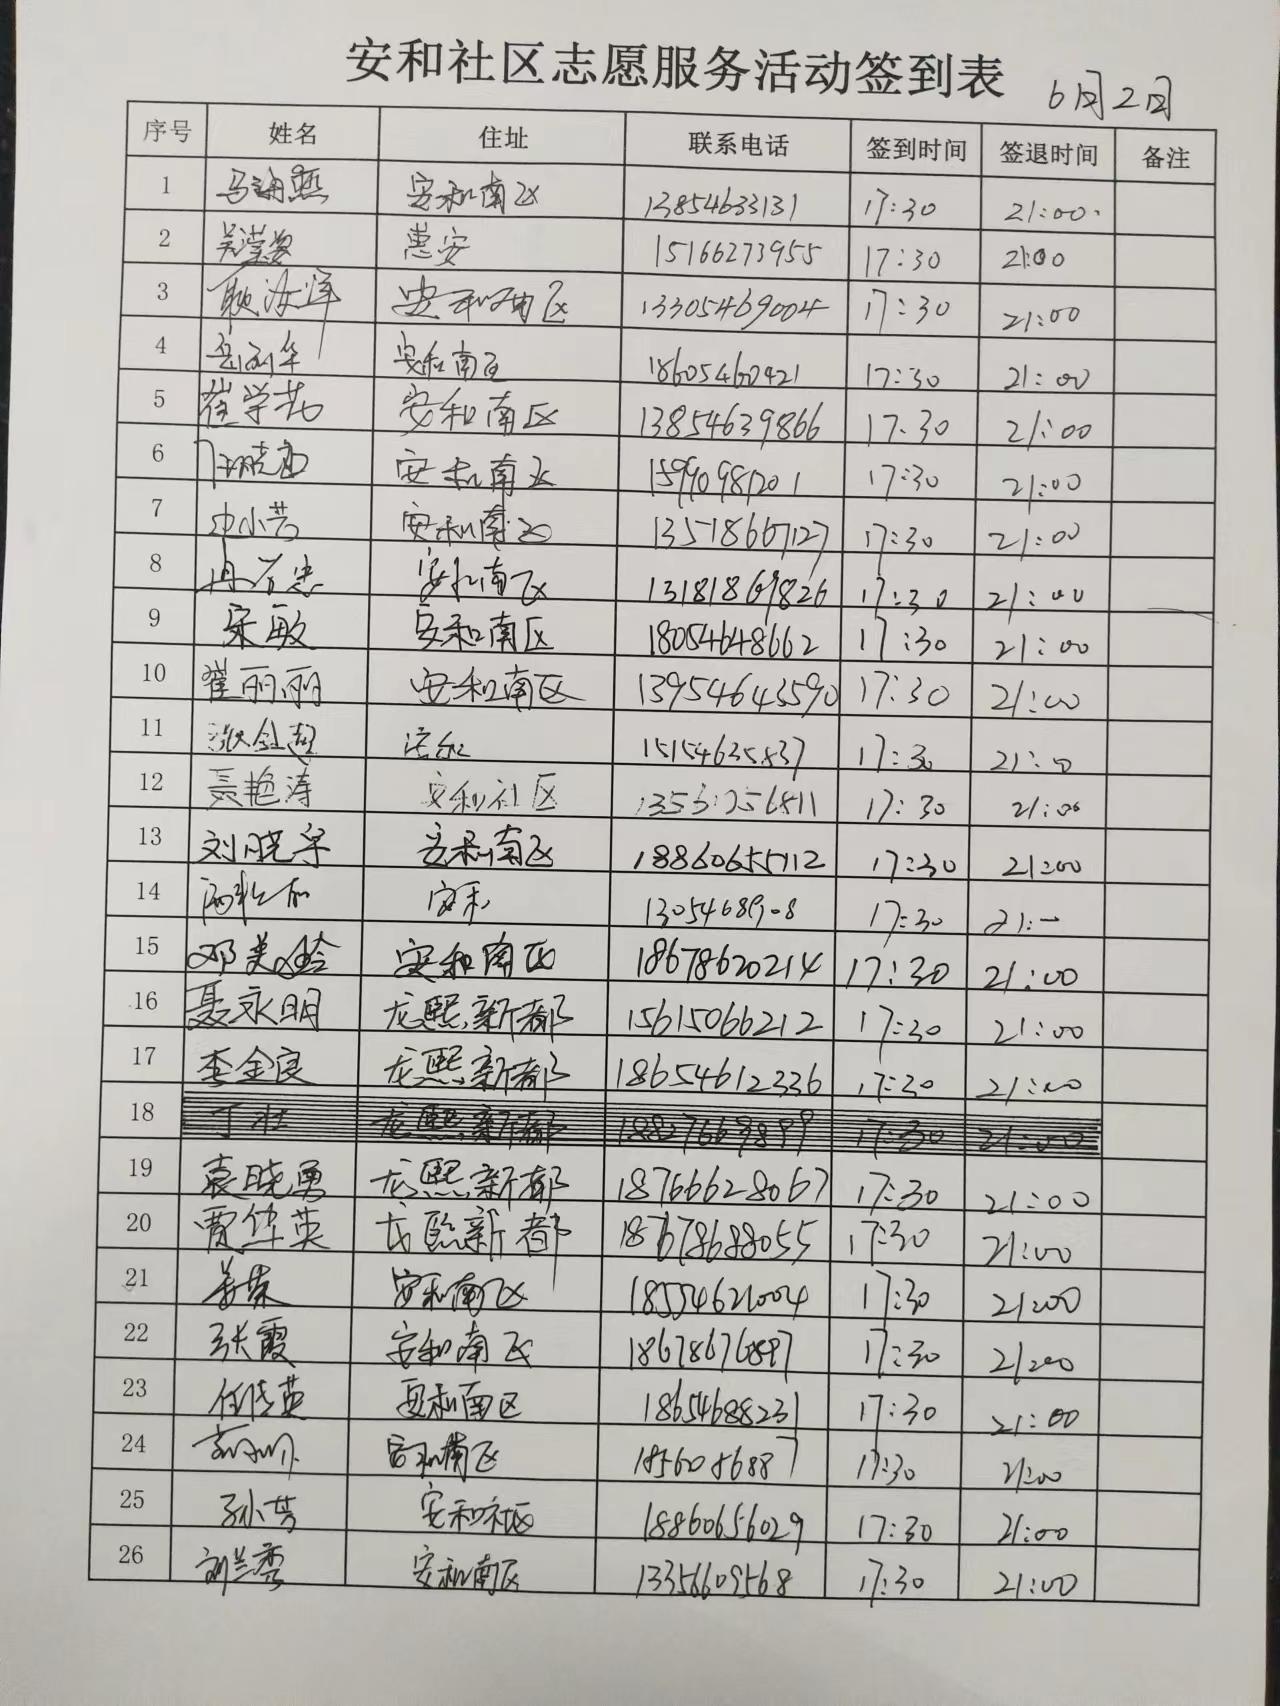 安和社区志愿服务活动签到表 6月2日
序号 姓名 住址 联系电话 签到时间 签退时间 备注
1 安和南区 13854633131 17:30 21:00
2 惠安 15166273955 17:30 21:00
3 耿汝洋 安和南区 13305469004 17:30 21:00
4 安和南区 18605460421 17:30 21:00
5 崔学花 安和南区 13854639866 17:30 21:00
6 安和南区 17:30 21:00
7 安和南区 13518667127 17:30 21:00
8 安和南区 13181869826 17:30 21:00
9 宋敏 安和南区 18054648662 17:30 21:00
10 翟丽丽 安和南区 13954643590 17:30 21:00
11 17:30 21:00
12 聂艳涛 安和社区 17:30 21:00
13 安和南区 18860655112 17:30 21:00
14 安和 17:30
15 邓美玲 安和南区 18678620214 17:30 21:00
16 聂永明 龙熙新都 15615066212 17:30 21:00
17 李金良 龙熙新都 18654612336 17:30 21:00
18 丁壮 龙熙新都 17:30 21:00
19 袁晓勇 龙熙新都 18766628067 17:30 21:00
20 贾华英 龙熙新都 17:30 21:00
21 安和南区 18554621004 17:30 21:00
22 张霞 安和南区 18678676897 17:30 21:00
23 安和南区 18654688231 17:30 21:00
24 安和南区 17:30 21:00
25 孙芳 安和社区 18860656029 17:30 21:00
26 刘兰秀 安和南区 13356609568 17:30 21:00